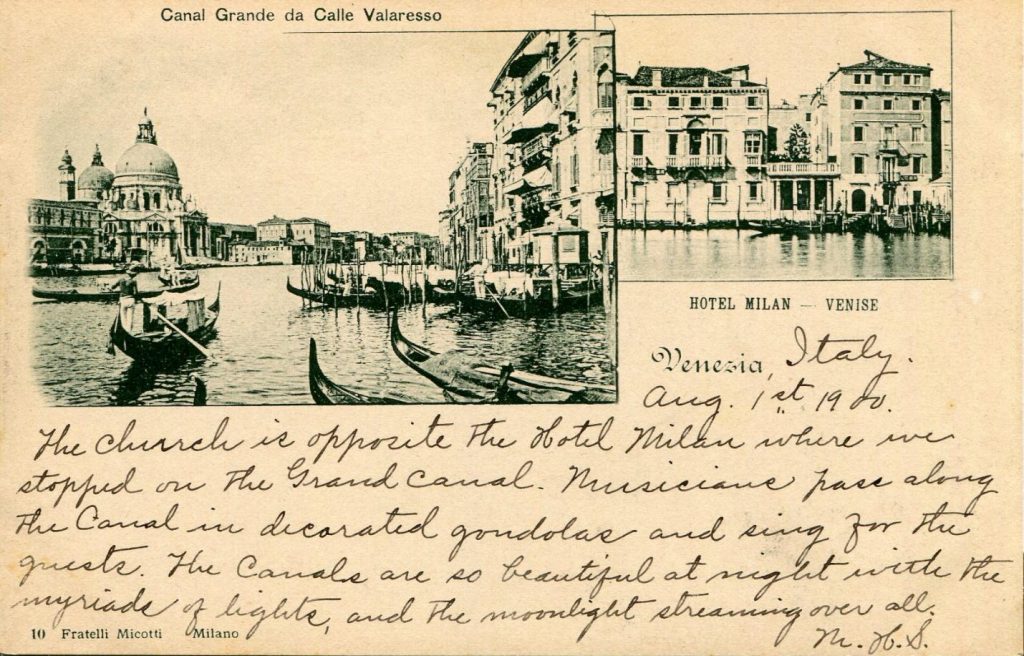 Canal Grande da Calle Valaresso
HOTEL MILAN — VENISE
Venezia, Italy.
Aug. 1st 1900.
The church is opposite the Hotel Milan where we
stopped on the Grand Canal. Musicians pass along
the Canal in decorated gondolas and sing for the
guests. The Canals are so beautiful at night with the
myriads of lights, and the moonlight streaming over all.
M. H. S.
10 Fratelli Micotti Milano